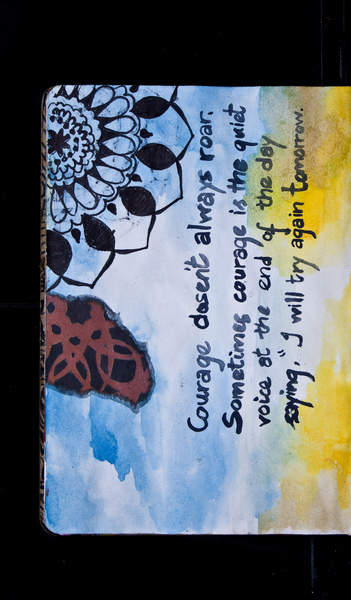 Courage doesn't always roar.
Sometimes courage is the quiet
voice at the end of the day
saying, "I will try again tomorrow.